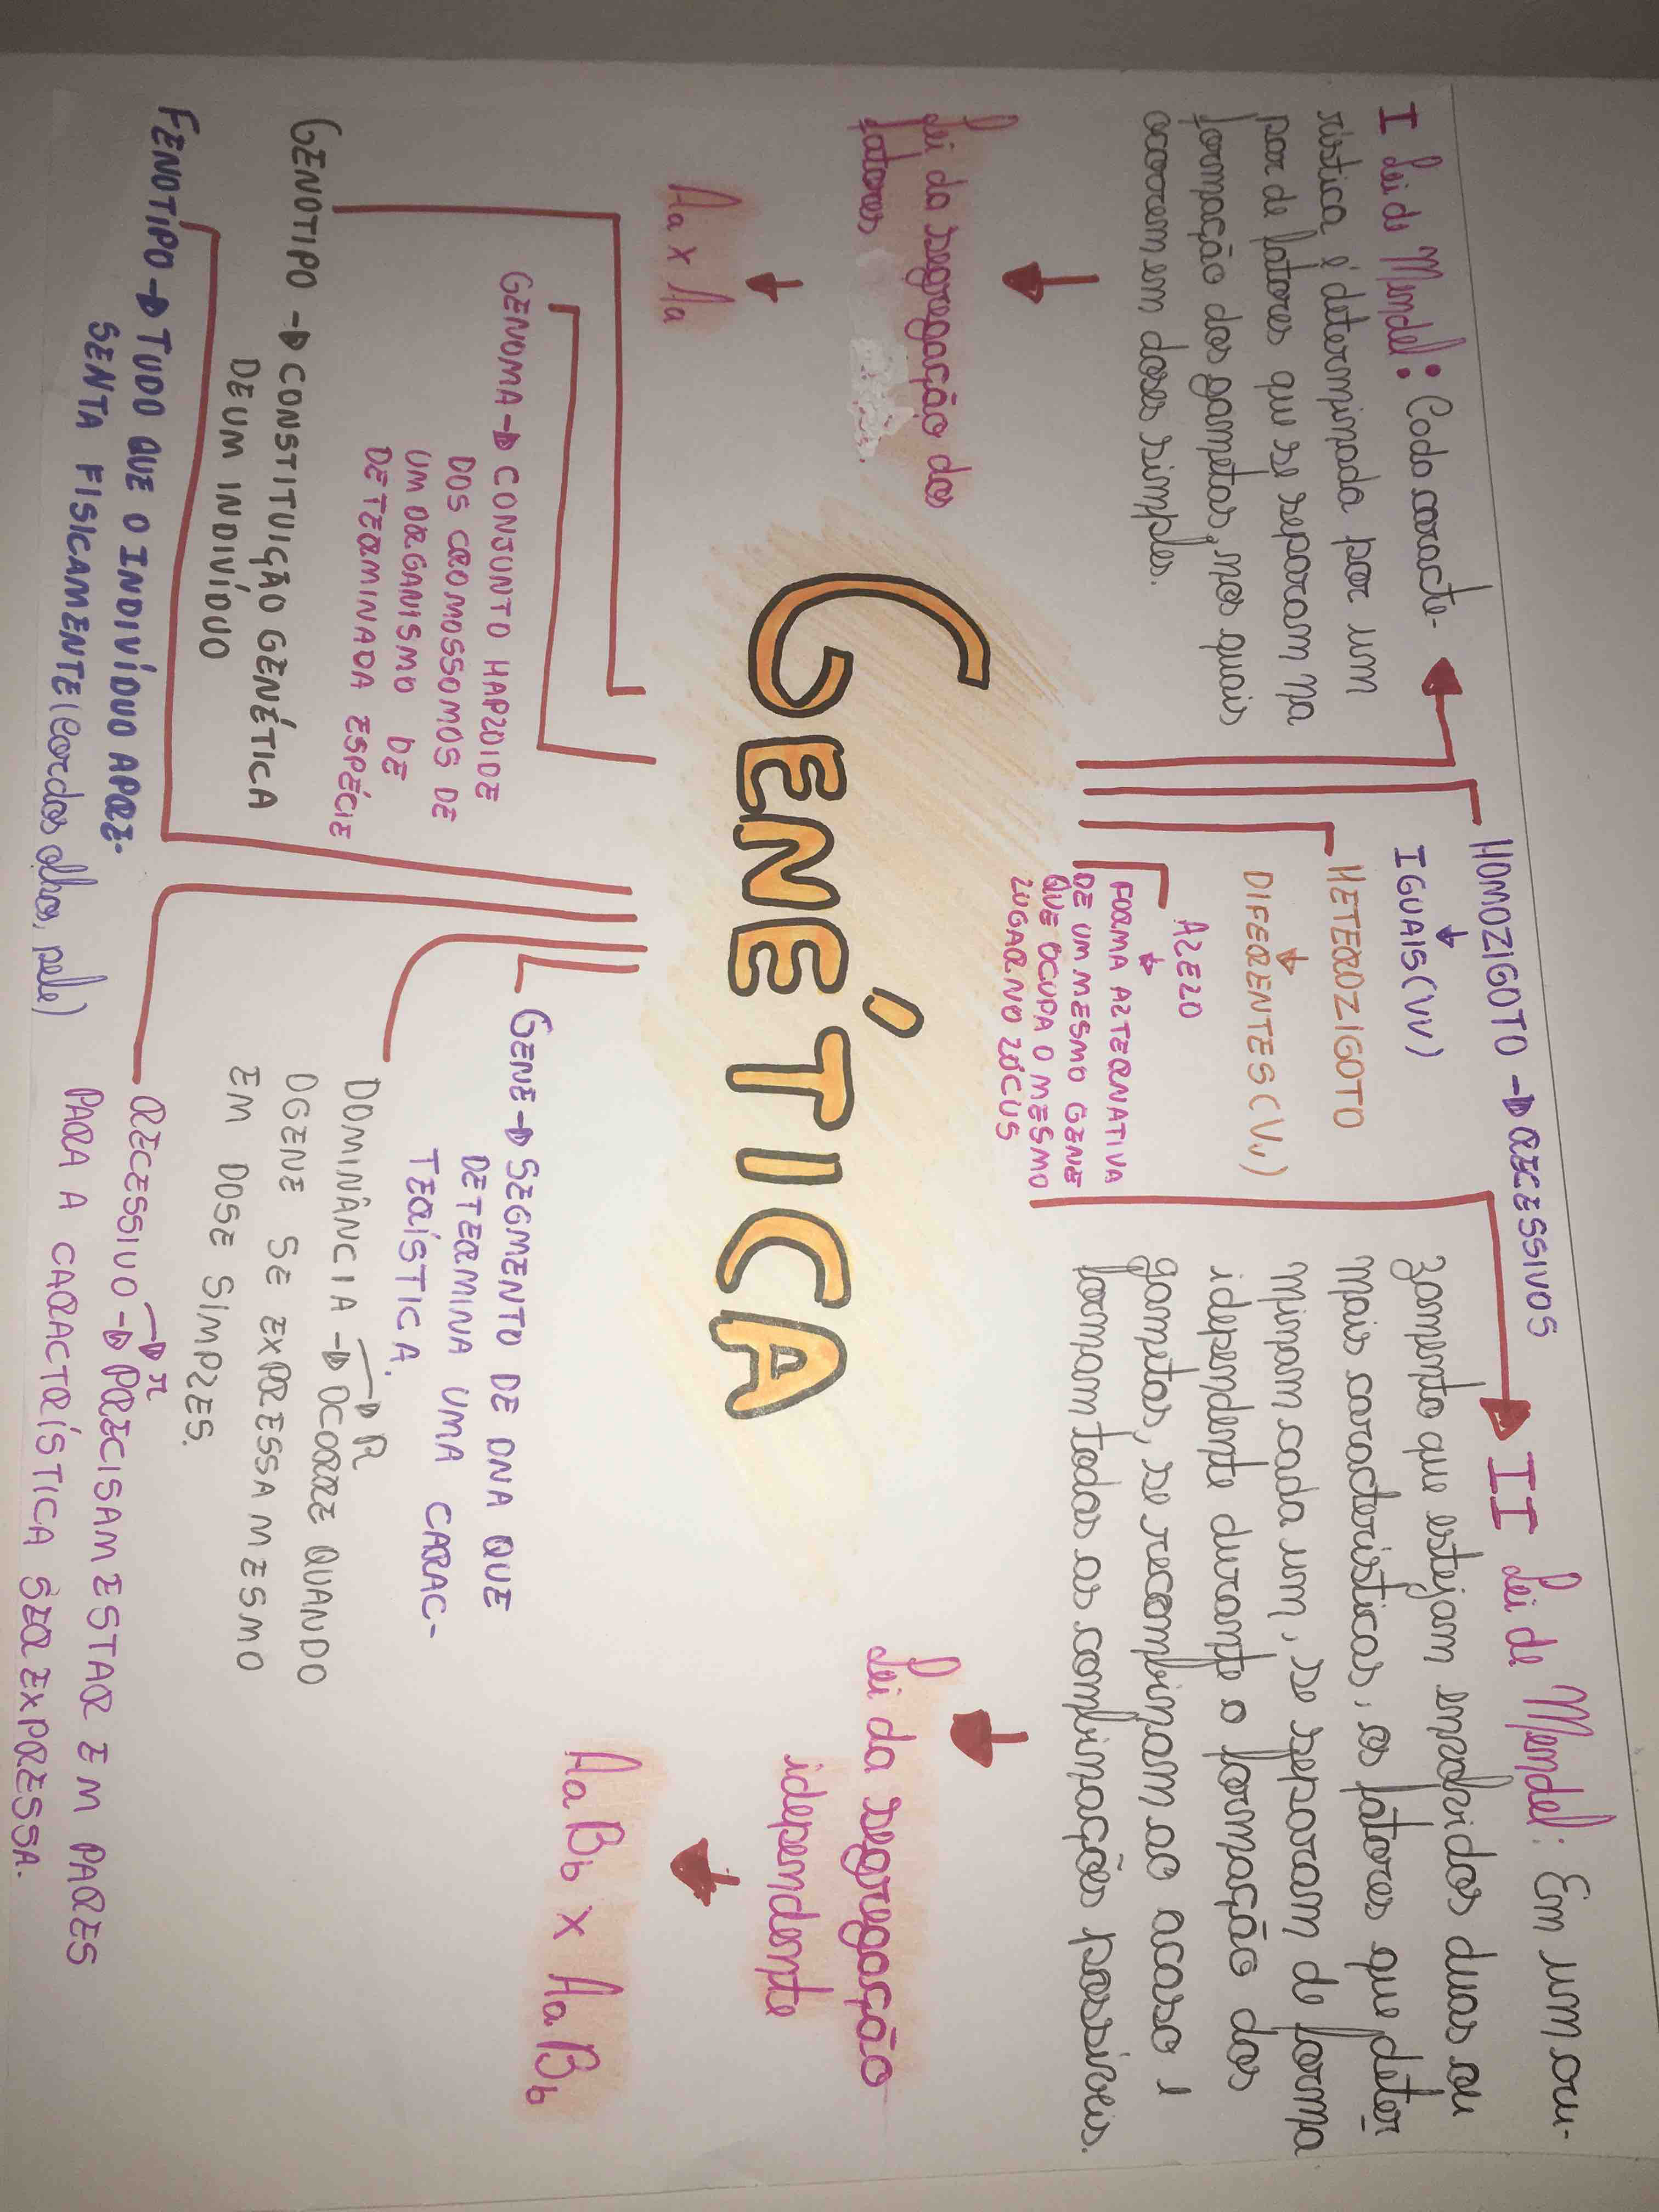 I Lei de Mendel: Cada caracte-
rística é determinada por um
par de fatores que se separam na
formação dos gametas, nos quais
ocorrem em doses simples.
Lei da segregação dos
fatores
Aa x Aa
HOMOZIGOTO → RECESSIVOS
IGUAIS (VV)
HETEROZIGOTO
DIFERENTES (Vv)
ALELO
FORMA ALTERNATIVA
DE UM MESMO GENE
QUE OCUPA O MESMO
LUGAR NO LÓCUS
II Lei de Mendel: Em um cru-
zamento que estejam envolvidos duas ou
mais características, os fatores que deter
minam cada um, se separam de forma
idependente durante a formação dos
gametas, se recombinam ao acaso e
formam todas as combinações possíveis.
Lei da segregação
idependente
AaBb x AaBb
GENÉTICA
GENOMA → CONJUNTO HAPLOIDE
DOS CROMOSSOMOS DE
UM ORGANISMO DE
DETERMINADA ESPÉCIE
GENOTIPO → CONSTITUIÇÃO GENÉTICA
DE UM INDIVÍDUO
FENOTÍPO → TUDO QUE O INDIVÍDUO APRE-
SENTA FISICAMENTE (Cor dos olhos, pele)
GENE → SEGMENTO DE DNA QUE
DETERMINA UMA CARAC-
TERÍSTICA.
DOMINÂNCIA → OCORRE QUANDO
→ R
O GENE SE EXPRESSA MESMO
EM DOSE SIMPLES.
RECESSIVO → PRECISAM ESTAR EM PARES
→ r
PARA A CARACTRÍSTICA SER EXPRESSA.